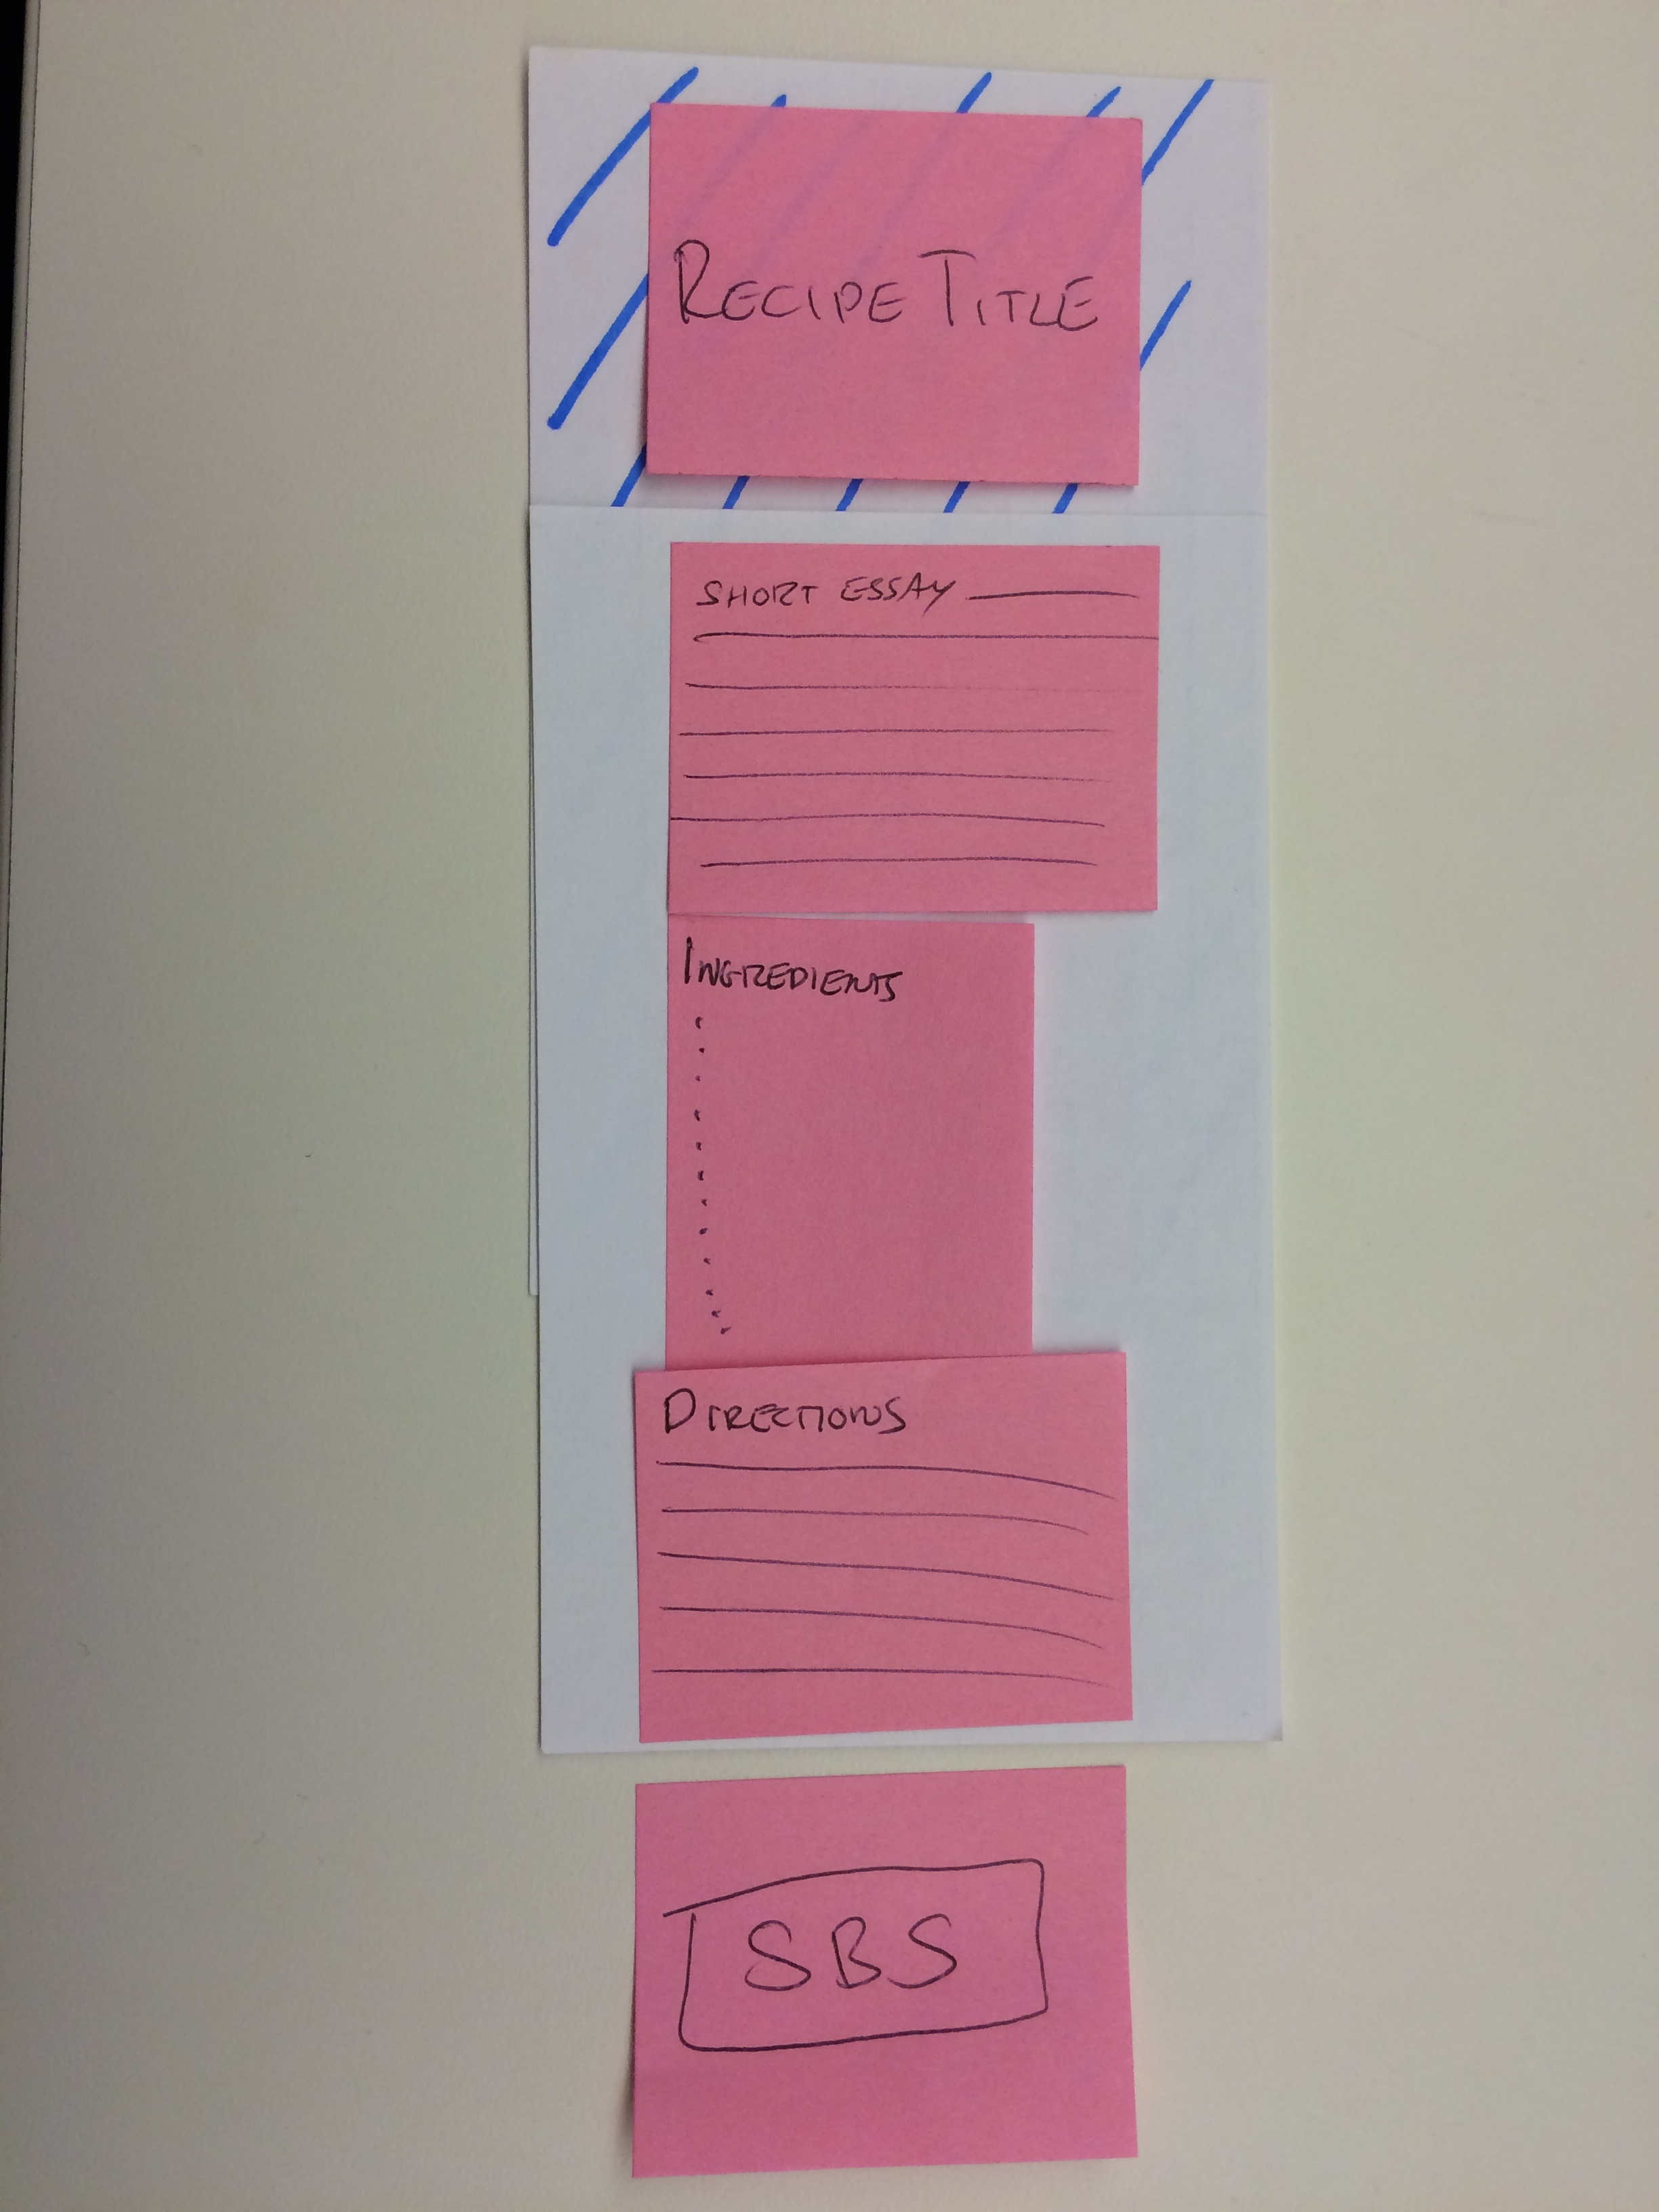 RECIPE TITLE
SHORT ESSAY
INGREDIENTS
DIRECTIONS
SBS